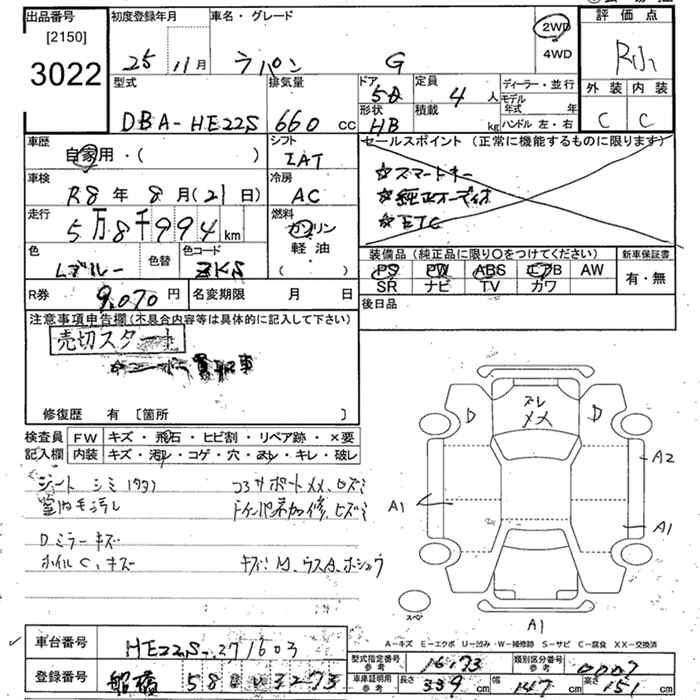 出品番号 初度登録年月 車名・グレード 2WD 評価点
[2150] 25年 11月 ラパン G 4WD R小
3022 型式 排気量 ドア 定員 ディーラー・並行 外装 内装
DBA-HE22S 660cc 5D 4人 モデル年式 年 C C
形状 積載 kg ハンドル 左・右
HB
車歴 シフト セールスポイント (正常に機能するものに限ります)
自家用・( ) IAT
☆スマートキー
車検 冷房
R8年 8月(21日) AC ☆純正オーディオ
走行 燃料 ☆ETC
5万8千994km ガソリン
軽油・
( )
色 色替 色コード 装備品 (純正品に限り○をつけてください) 新車保証書
Lブルー ZKS PS PW ABS エアB AW 有・無
SR ナビ TV カワ
R券 9,070円 名変期限 月 日 後日品
注意事項申告欄(不具合内容等は具体的に記入して下さい)
売切スタート
修復歴 有 [箇所 ]
検査員 FW キズ・飛石・ヒビ割・リペア跡・×要
記入欄 内装 キズ・汚れ・コゲ・穴・スレ・キレ・破レ
シート シミ コアサポートXX、ヒズミ
室内モ汚レ
Dミラーキズ
ホイルC、キズ
ズレ
XX
D D
A2
A1 A1
スペア
A1
A-キズ E-エクボ U-凹み W-補修跡 S-サビ C-腐食 XX-交換済
車台番号 HE22S-271603
登録番号 船橋 580 3273
型式指定番号 参考 16173 類別区分番号 参考 0007
車庫証明用 参考 長さ 339cm 幅 147cm 高さ 151cm